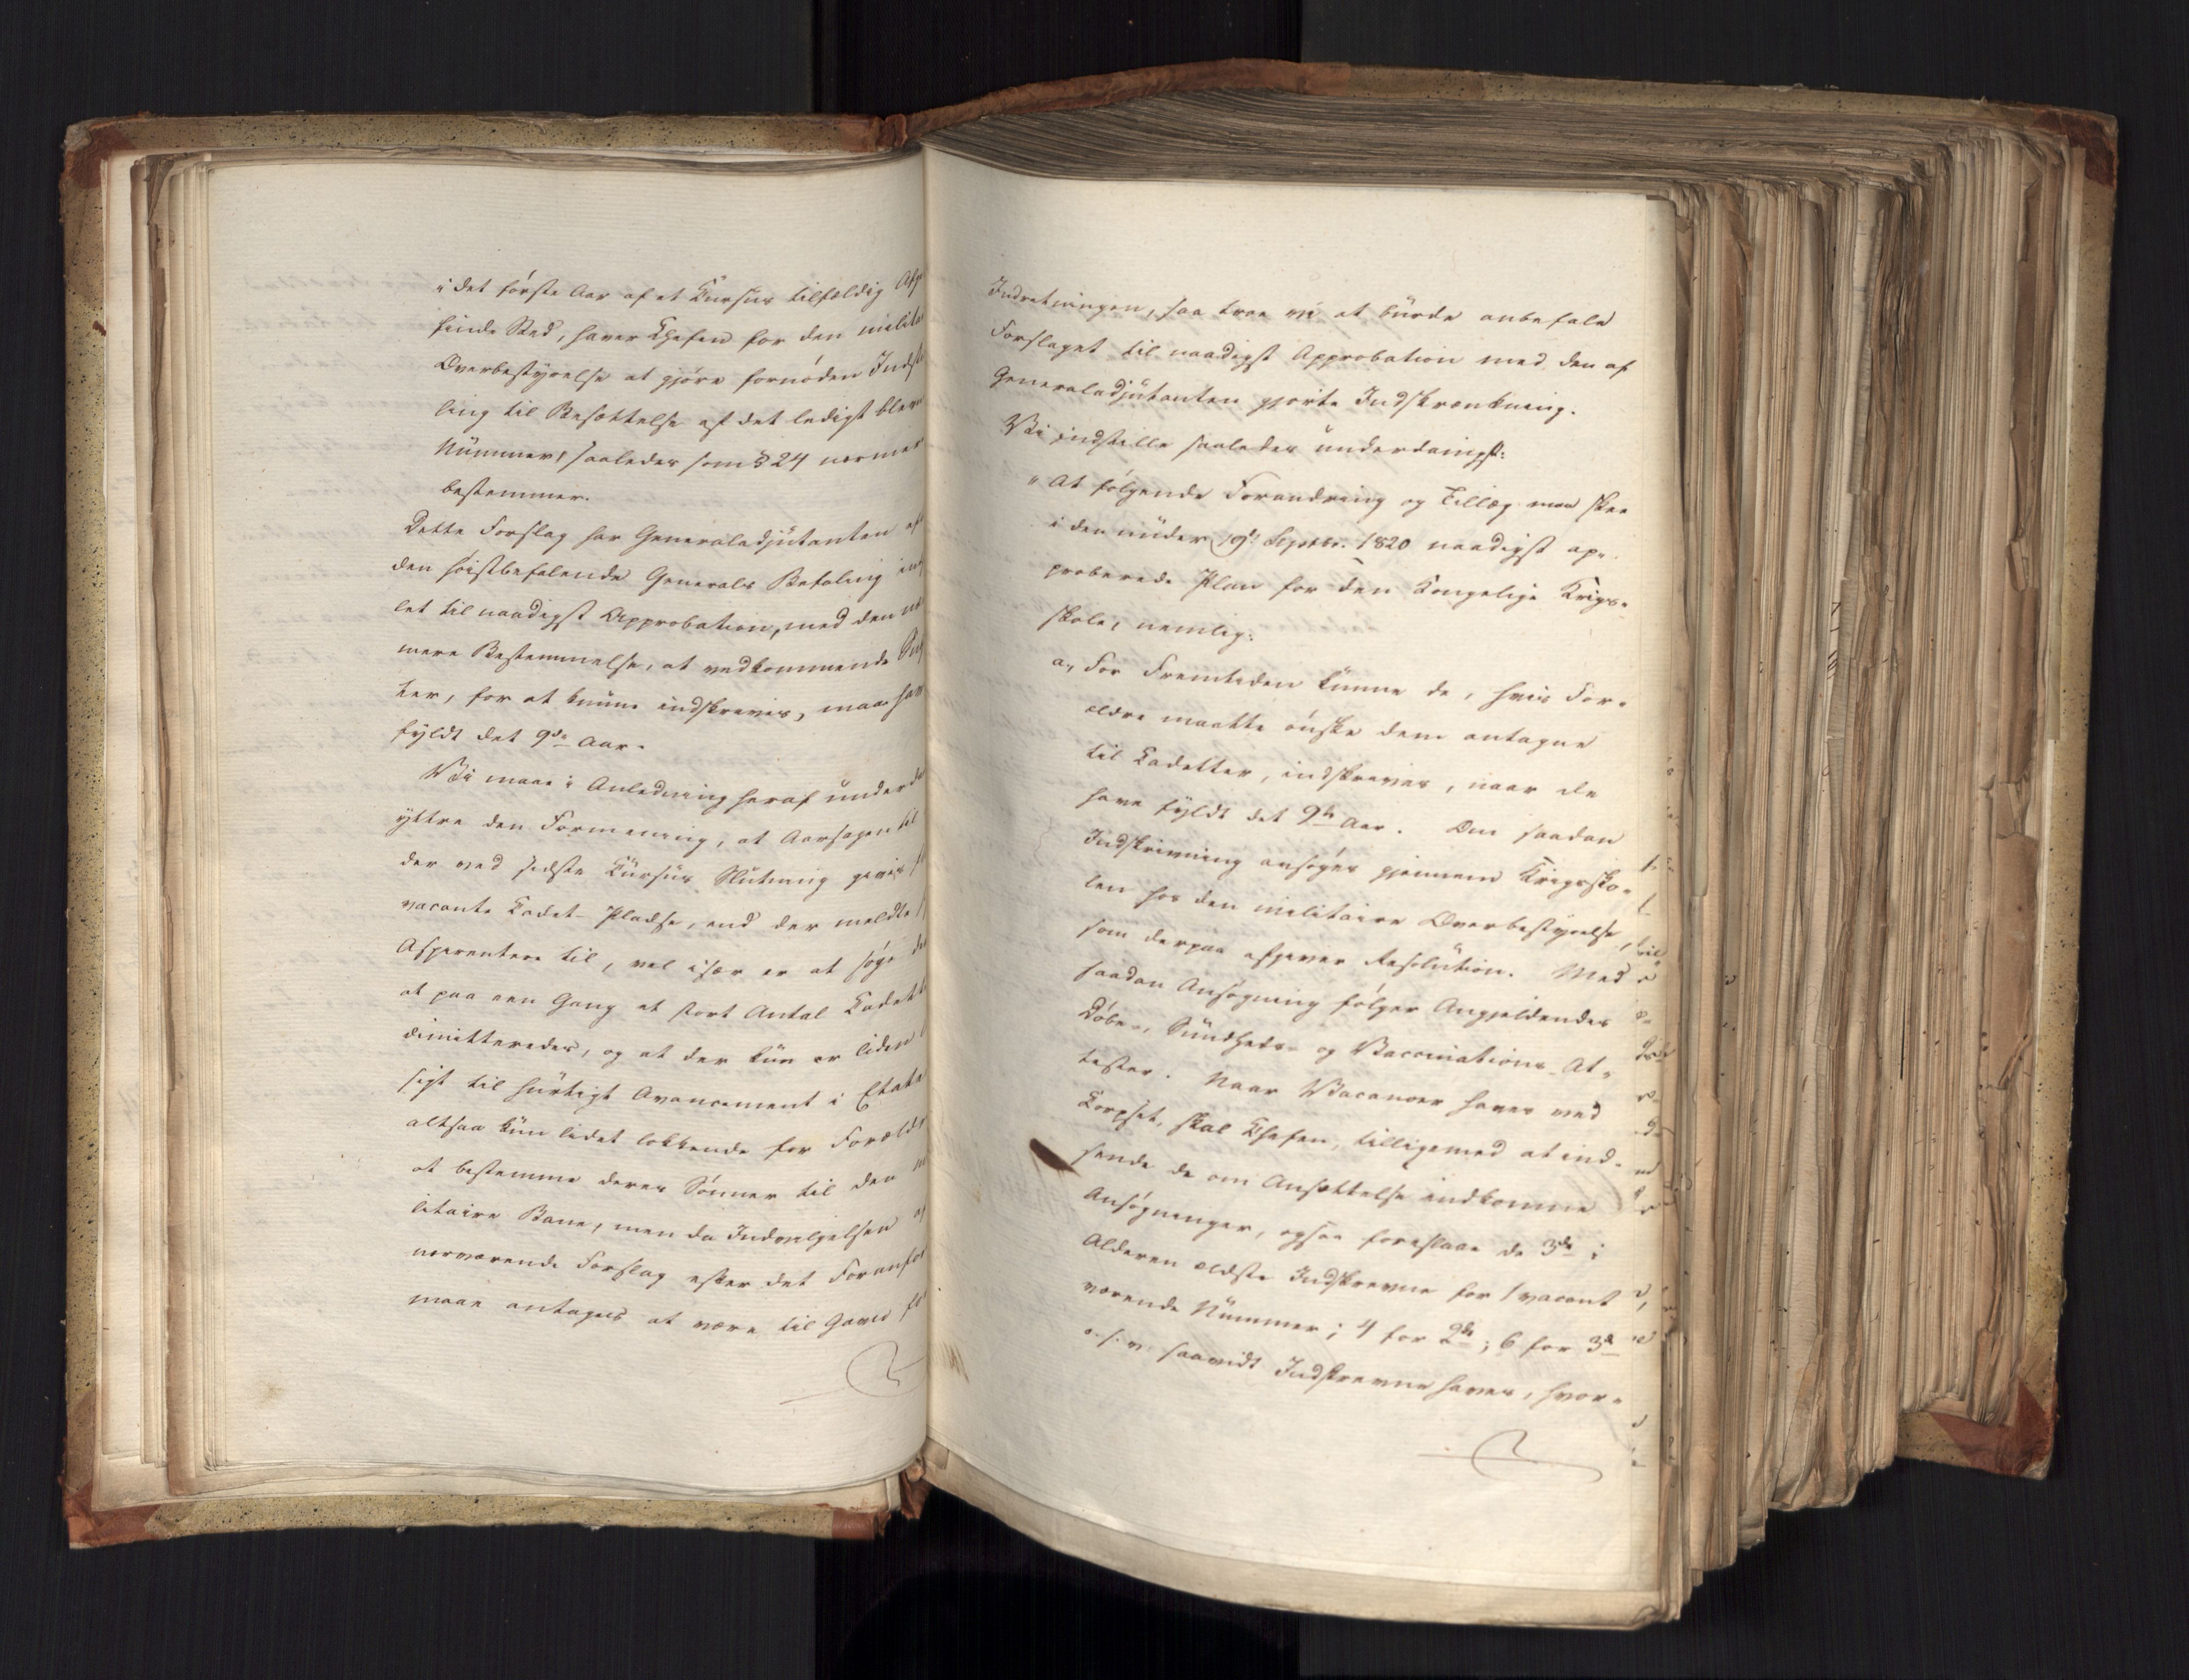 i det første Aar af et Kursus tilfældig Afg
finde Sted, haver Chefen for den milita
Overbestyrelse at gjøre fornøden Indst
ling til Besættelse af det ledigt blevn
Nummer, saaledes som § 24 nærmer
bestemmer.
Dette Forslag har Generaladjutanten ef
den høistbefalende Generals Befaling ind
let til naadigst Approbation, med den næ
mere Bestemmelse, at vedkommende
ter, for at kunne indskrives, maae hav
fyldt det 9de Aar.
Vi maae i Anledning heraf underd
yttre den Formening, at Aarsagen til
der ved sidste Kursus Slutning gaves fl
vacante Kadet-Pladse, end der meldte s
Asperentere til, vel især er at søge der
at paa een Gang et stort Antal Kadett
dimitteredes, og at der kun er liden
sigt til hurtigt Avancement i Etate
altsaa kun lidet lokkende for Forældr
at bestemme deres Sønner til den m
litaire Bane, men da Indvilgelsen af
nærværende Forslag efter det Foranfør
maae antages at være til Gavn for
Indretningen, saa troe vi at burde anbefale
Forslaget til naadigst Approbation med den af
Generaladjutanten gjorte Indskrænkning.
Vi indstille saaledes underdanigst:
"At følgende Forandring og Tillæg maa skee
i den under 19de Septbr. 1820 naadigst ap-
proberede Plan for den Kongelige Krigs-
skole, nemlig:
a, For Fremtiden kunne de, hvis For-
ældre maatte ønske dem antagne
til Kadetter, indskrives, naar de
have fyldt det 9de Aar. Om saadan
Indskrivning ansøges gjennem Krigssko-
len hos den militaire Overbestyrelse,
som derpaa afgiver Resolution. Med
saadan Ansøgning følger Angjeldendes
Døbe-, Sundheds- og Vaccinations-At-
tester. Naar Vacancer haves ved
Korpset, skal Chefen, tilligemed at ind-
sende de om Ansættelse indkomne
Ansøgninger, ogsaa foreslaae de 3de i
Alderen ældste Indskrevne for 1 vacant
værende Nummer; 4 for 2de; 6 for 3de
o. s. v. saavidt Indskrevne haves, hvor-